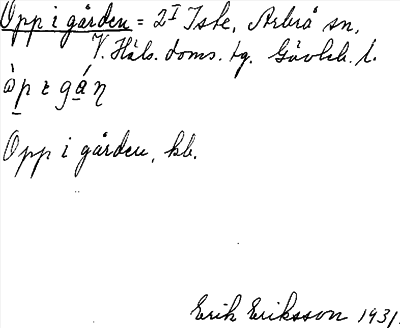 Opp i gården = 2^I Iste, Arbrå sn,
V. Häls. doms. tg. Gävleb. l.
Opp i gården, kb.
Erik Eriksson 1931.